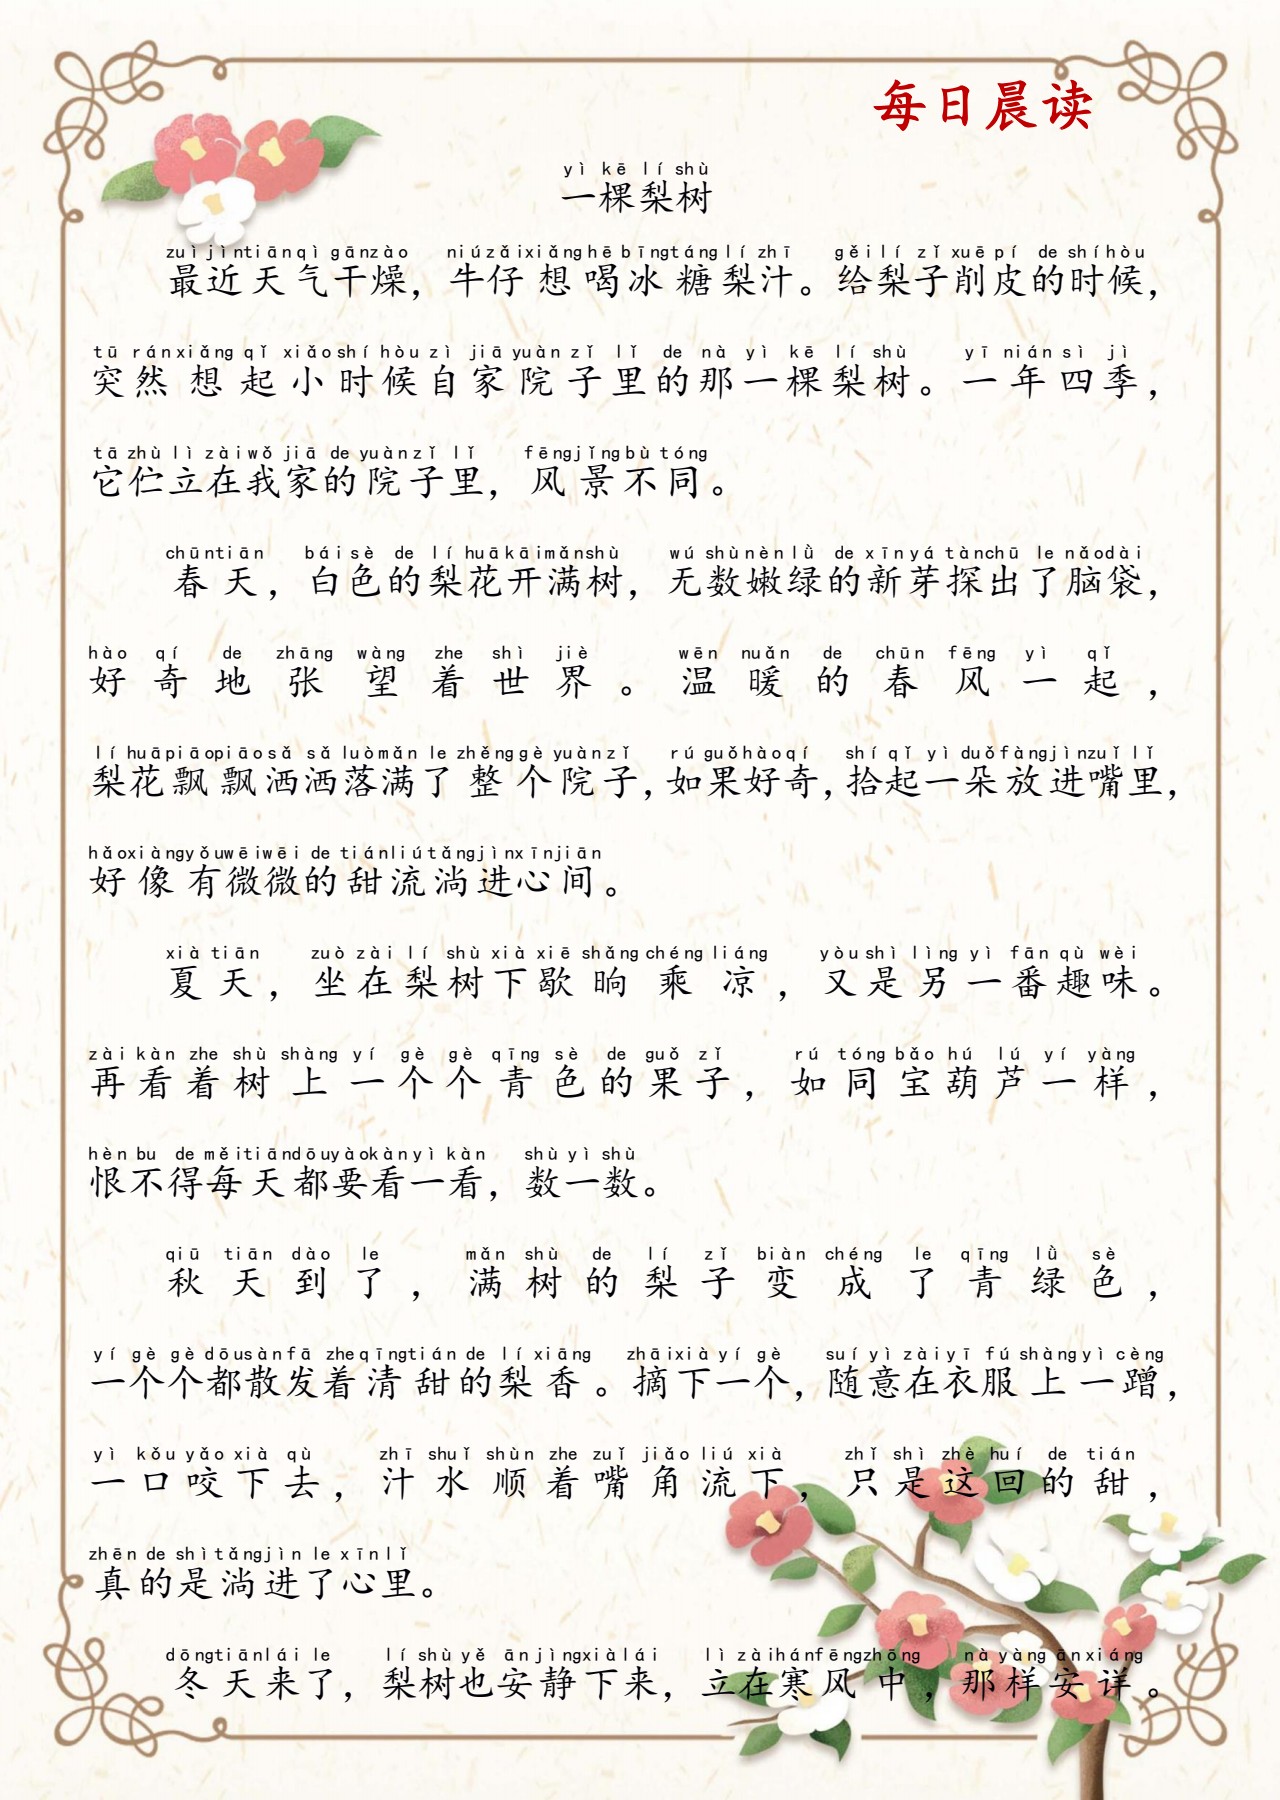 每日晨读
yì kē lí shù
一棵梨树
zuì jìn tiān qì gān zào niú zǎi xiǎng hē bīng táng lí zhī gěi lí zǐ xuē pí de shí hòu
最近天气干燥，牛仔想喝冰糖梨汁。给梨子削皮的时候，
tū rán xiǎng qǐ xiǎo shí hòu zì jiā yuàn zǐ lǐ de nà yì kē lí shù yī nián sì jì
突然想起小时候自家院子里的那一棵梨树。一年四季，
tā zhù lì zài wǒ jiā de yuàn zǐ lǐ fēng jǐng bù tóng
它伫立在我家的院子里，风景不同。
chūn tiān bái sè de lí huā kāi mǎn shù wú shù nèn lǜ de xīn yá tàn chū le nǎo dài
春天，白色的梨花开满树，无数嫩绿的新芽探出了脑袋，
hào qí de zhāng wàng zhe shì jiè wēn nuǎn de chūn fēng yì qǐ
好奇地张望着世界。温暖的春风一起，
lí huā piāo piāo sǎ sǎ luò mǎn le zhěng gè yuàn zǐ rú guǒ hào qí shí qǐ yì duǒ fàng jìn zuǐ lǐ
梨花飘飘洒洒落满了整个院子，如果好奇，拾起一朵放进嘴里，
hǎo xiàng yǒu wēi wēi de tián liú tǎng jìn xīn jiān
好像有微微的甜流淌进心间。
xià tiān zuò zài lí shù xià xiē shǎng chéng liáng yòu shì lìng yì fān qù wèi
夏天，坐在梨树下歇晌乘凉，又是另一番趣味。
zài kàn zhe shù shàng yí gè gè qīng sè de guǒ zǐ rú tóng bǎo hú lú yí yàng
再看着树上一个个青色的果子，如同宝葫芦一样，
hèn bu de měi tiān dōu yào kàn yì kàn shù yì shù
恨不得每天都要看一看，数一数。
qiū tiān dào le mǎn shù de lí zǐ biàn chéng le qīng lǜ sè
秋天到了，满树的梨子变成了青绿色，
yí gè gè dōu sàn fā zhe qīng tián de lí xiāng zhāi xià yí gè suí yì zài yī fú shàng yì cèng
一个个都散发着清甜的梨香。摘下一个，随意在衣服上一蹭，
yì kǒu yǎo xià qù zhī shuǐ shùn zhe zuǐ jiǎo liú xià zhǐ shì zhè huí de tián
一口咬下去，汁水顺着嘴角流下，只是这回的甜，
zhēn de shì tǎng jìn le xīn lǐ
真的是淌进了心里。
dōng tiān lái le lí shù yě ān jìng xià lái lì zài hán fēng zhōng nà yàng ān xiáng
冬天来了，梨树也安静下来，立在寒风中，那样安详。